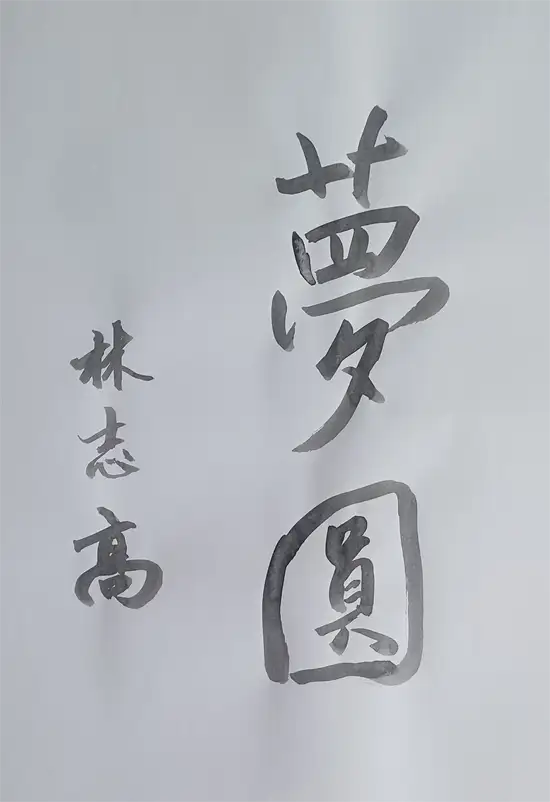 夢圓
林志高